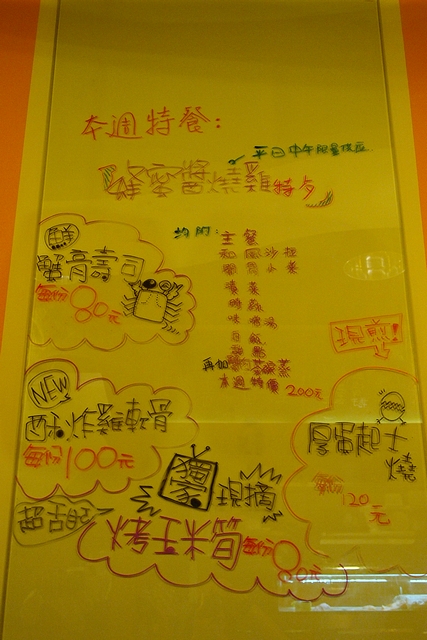 本週特餐:
平日中午限量供應
蜂蜜醬燒雞特夕
均附:主餐
和風沙拉
開胃小菜
味噌湯
再加
本週特價200元
鮮
蟹膏壽司
每份80元
現煎!
NEW
酥炸雞軟骨
每份100元
厚蛋起士燒
20元
超古時
獨家
現摘
烤玉米筍
每份80元